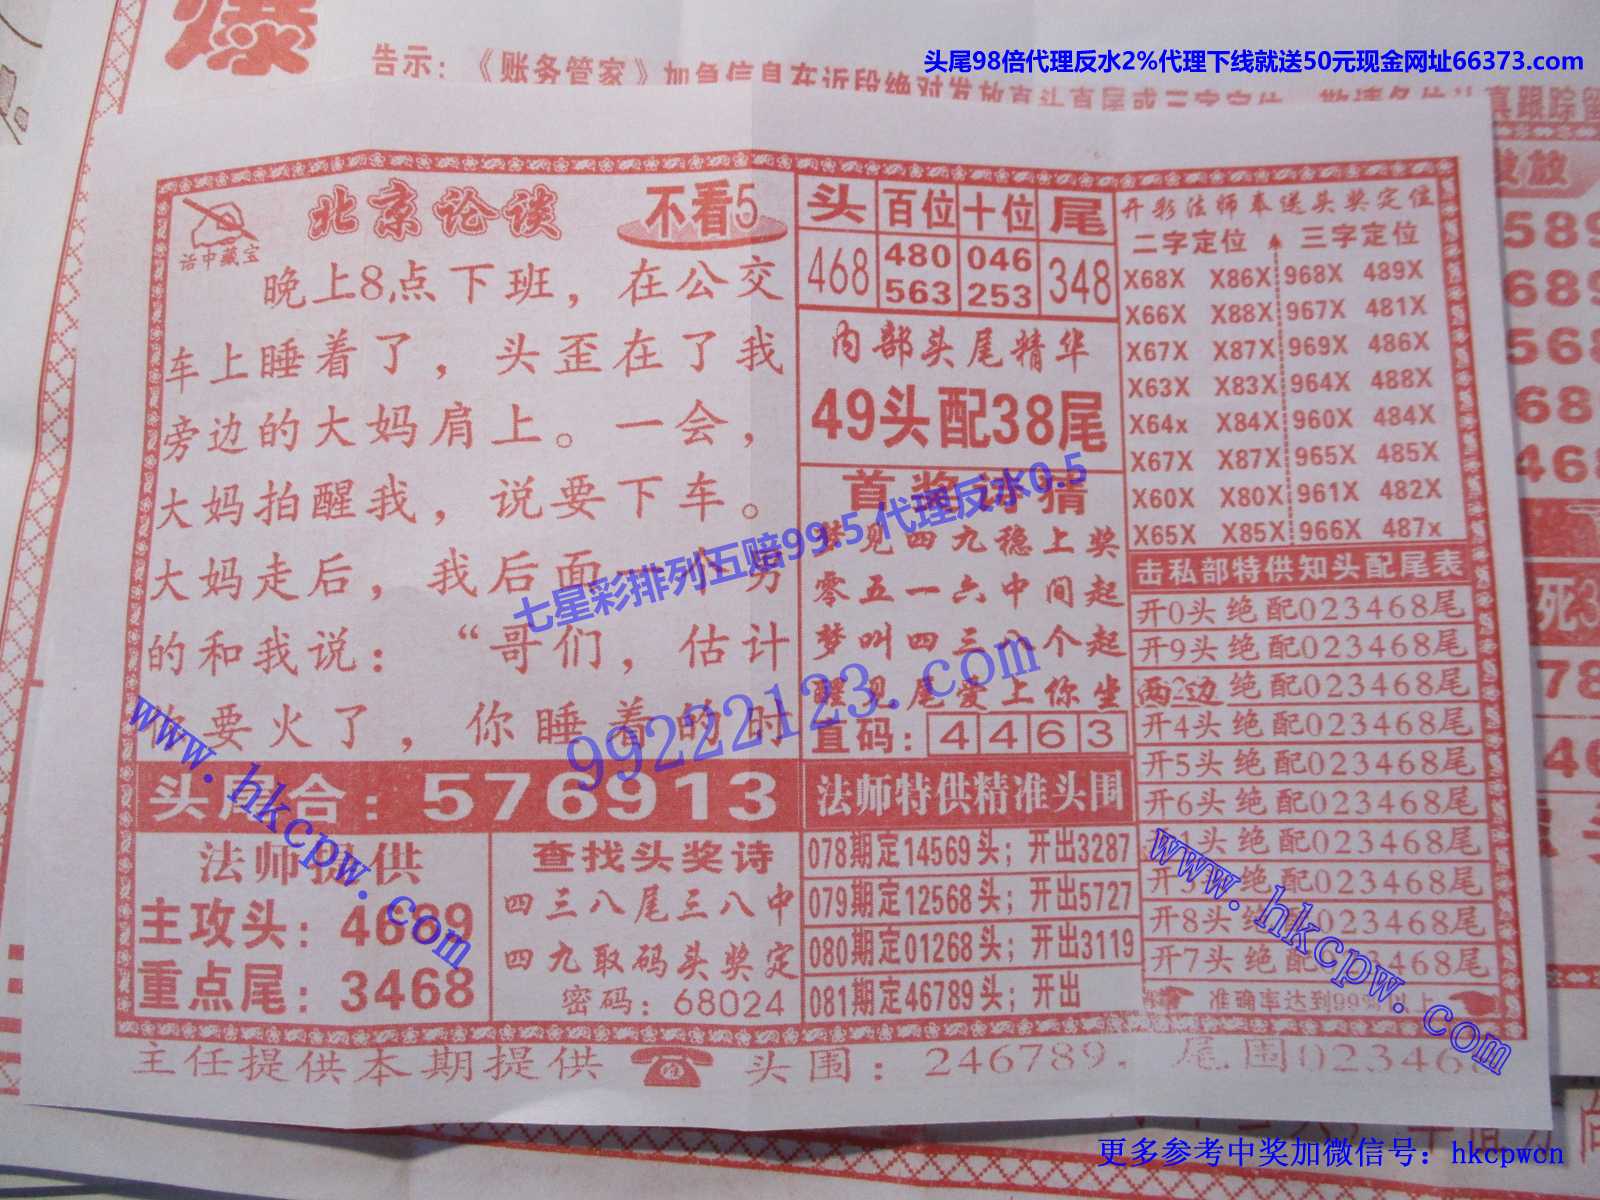 爆
头尾98倍代理反水2%代理下线就送50元现金网址66373.com
告示：《账务管家》加急信息在近段绝对发放直头直尾或三字定位
跟踪留
话中藏宝
北京论谈
不看5
晚上8点下班，在公交
车上睡着了，头歪在了我
旁边的大妈肩上。一会，
大妈拍醒我，说要下车。
大妈走后，我后面一小男
的和我说：“哥们，估计
要火了，你睡着的时
头尾合：576913
法师提供
主攻头：4689
重点尾：3468
查找头奖诗
四三八尾三八中
四九取码头奖定
密码：68024
头 百位 十位 尾
468 480 046 348
563 253
内部头尾精华
49头配38尾
首奖谜猜
梦见四九稳上奖
零五一六中间起
梦叫四三八个起
醒见尾爱上你坐两边
直码：4 4 6 3
法师特供精准头围
078期定14569头；开出3287
079期定12568头；开出5727
080期定01268头；开出3119
081期定46789头；开出
开彩法师奉送头奖定位
二字定位 三字定位
X68X X86X 968X 489X
X66X X88X 967X 481X
X67X X87X 969X 486X
X63X X83X 964X 488X
X64x X84X 960X 484X
X67X X87X 965X 485X
X60X X80X 961X 482X
X65X X85X 966X 487x
击私部特供知头配尾表
开0头绝配023468尾
开9头绝配023468尾
绝配023468尾
开4头绝配023468尾
开5头绝配023468尾
开6头绝配023468尾
开1头绝配023468尾
绝配023468尾
开8头绝配023468尾
开7头绝配023468尾
准确率达到99%以上
主任提供本期提供 头围：246789. 尾围023468
七星彩排列五赔99.5 代理反水0.5
99222123.com
www.hkcpw.com
www.hkcpw.com
更多参考中奖加微信号：hkcpwcn